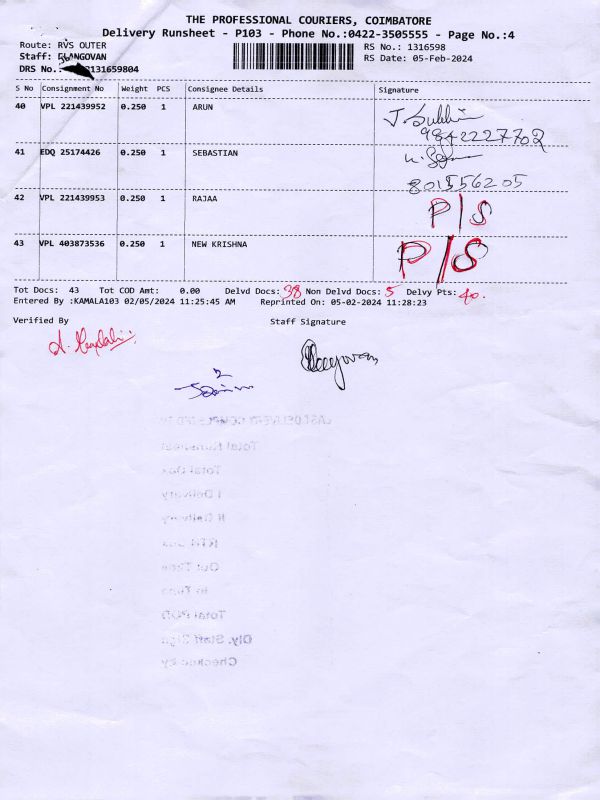 THE PROFESSIONAL COURIERS, COIMBATORE
Delivery Runsheet - P103 - Phone No.:0422-3505555 - Page No.:4
Route: RVS OUTER
RS No.: 1316598
Staff: ELANGOVAN
RS Date: 05-Feb-2024
DRS No.: 2131659804
S No Consignment No Weight PCS Consignee Details Signature
40 VPL 221439952 0.250 1 ARUN
9842227702
41 EDQ 25174426 0.250 1 SEBASTIAN
8015556205
42 VPL 221439953 0.250 1 RAJAA P/S
43 VPL 403873536 0.250 1 NEW KRISHNA P/S
Tot Docs: 43 Tot COD Amt: 0.00 Delvd Docs: 38 Non Delvd Docs: 5 Delvy Pts: 40.
Entered By :KAMALA103 02/05/2024 11:25:45 AM Reprinted On: 05-02-2024 11:28:23
Verified By Staff Signature
LAST DELIVERY COMPLETED BY
Total Runsheet
Total Dox
I Delivery
II Delivery
Out Time
In Time
Total POD
Dly. Staff Sign
Checked by